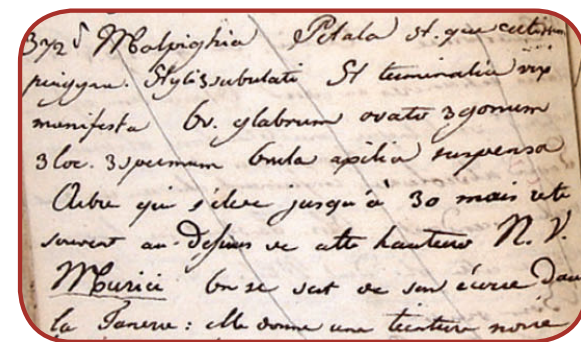 372 Malpighia Petala st. que
Styli 3 subulati St terminalia vix
manifesta Ov. glabrum ovato 3gonum
3 loc. 3 spermum Ovula apilia suspensa
Arbre qui s'élève jusqu'à 30 mais reste
souvent au-dessous de cette hauteur N. V.
Murici On se sert de son écorce dans
la Tanerie : elle donne une teinture noire